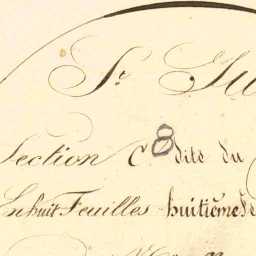 St Ju
Section C 8 dite du
En huit Feuilles huitième